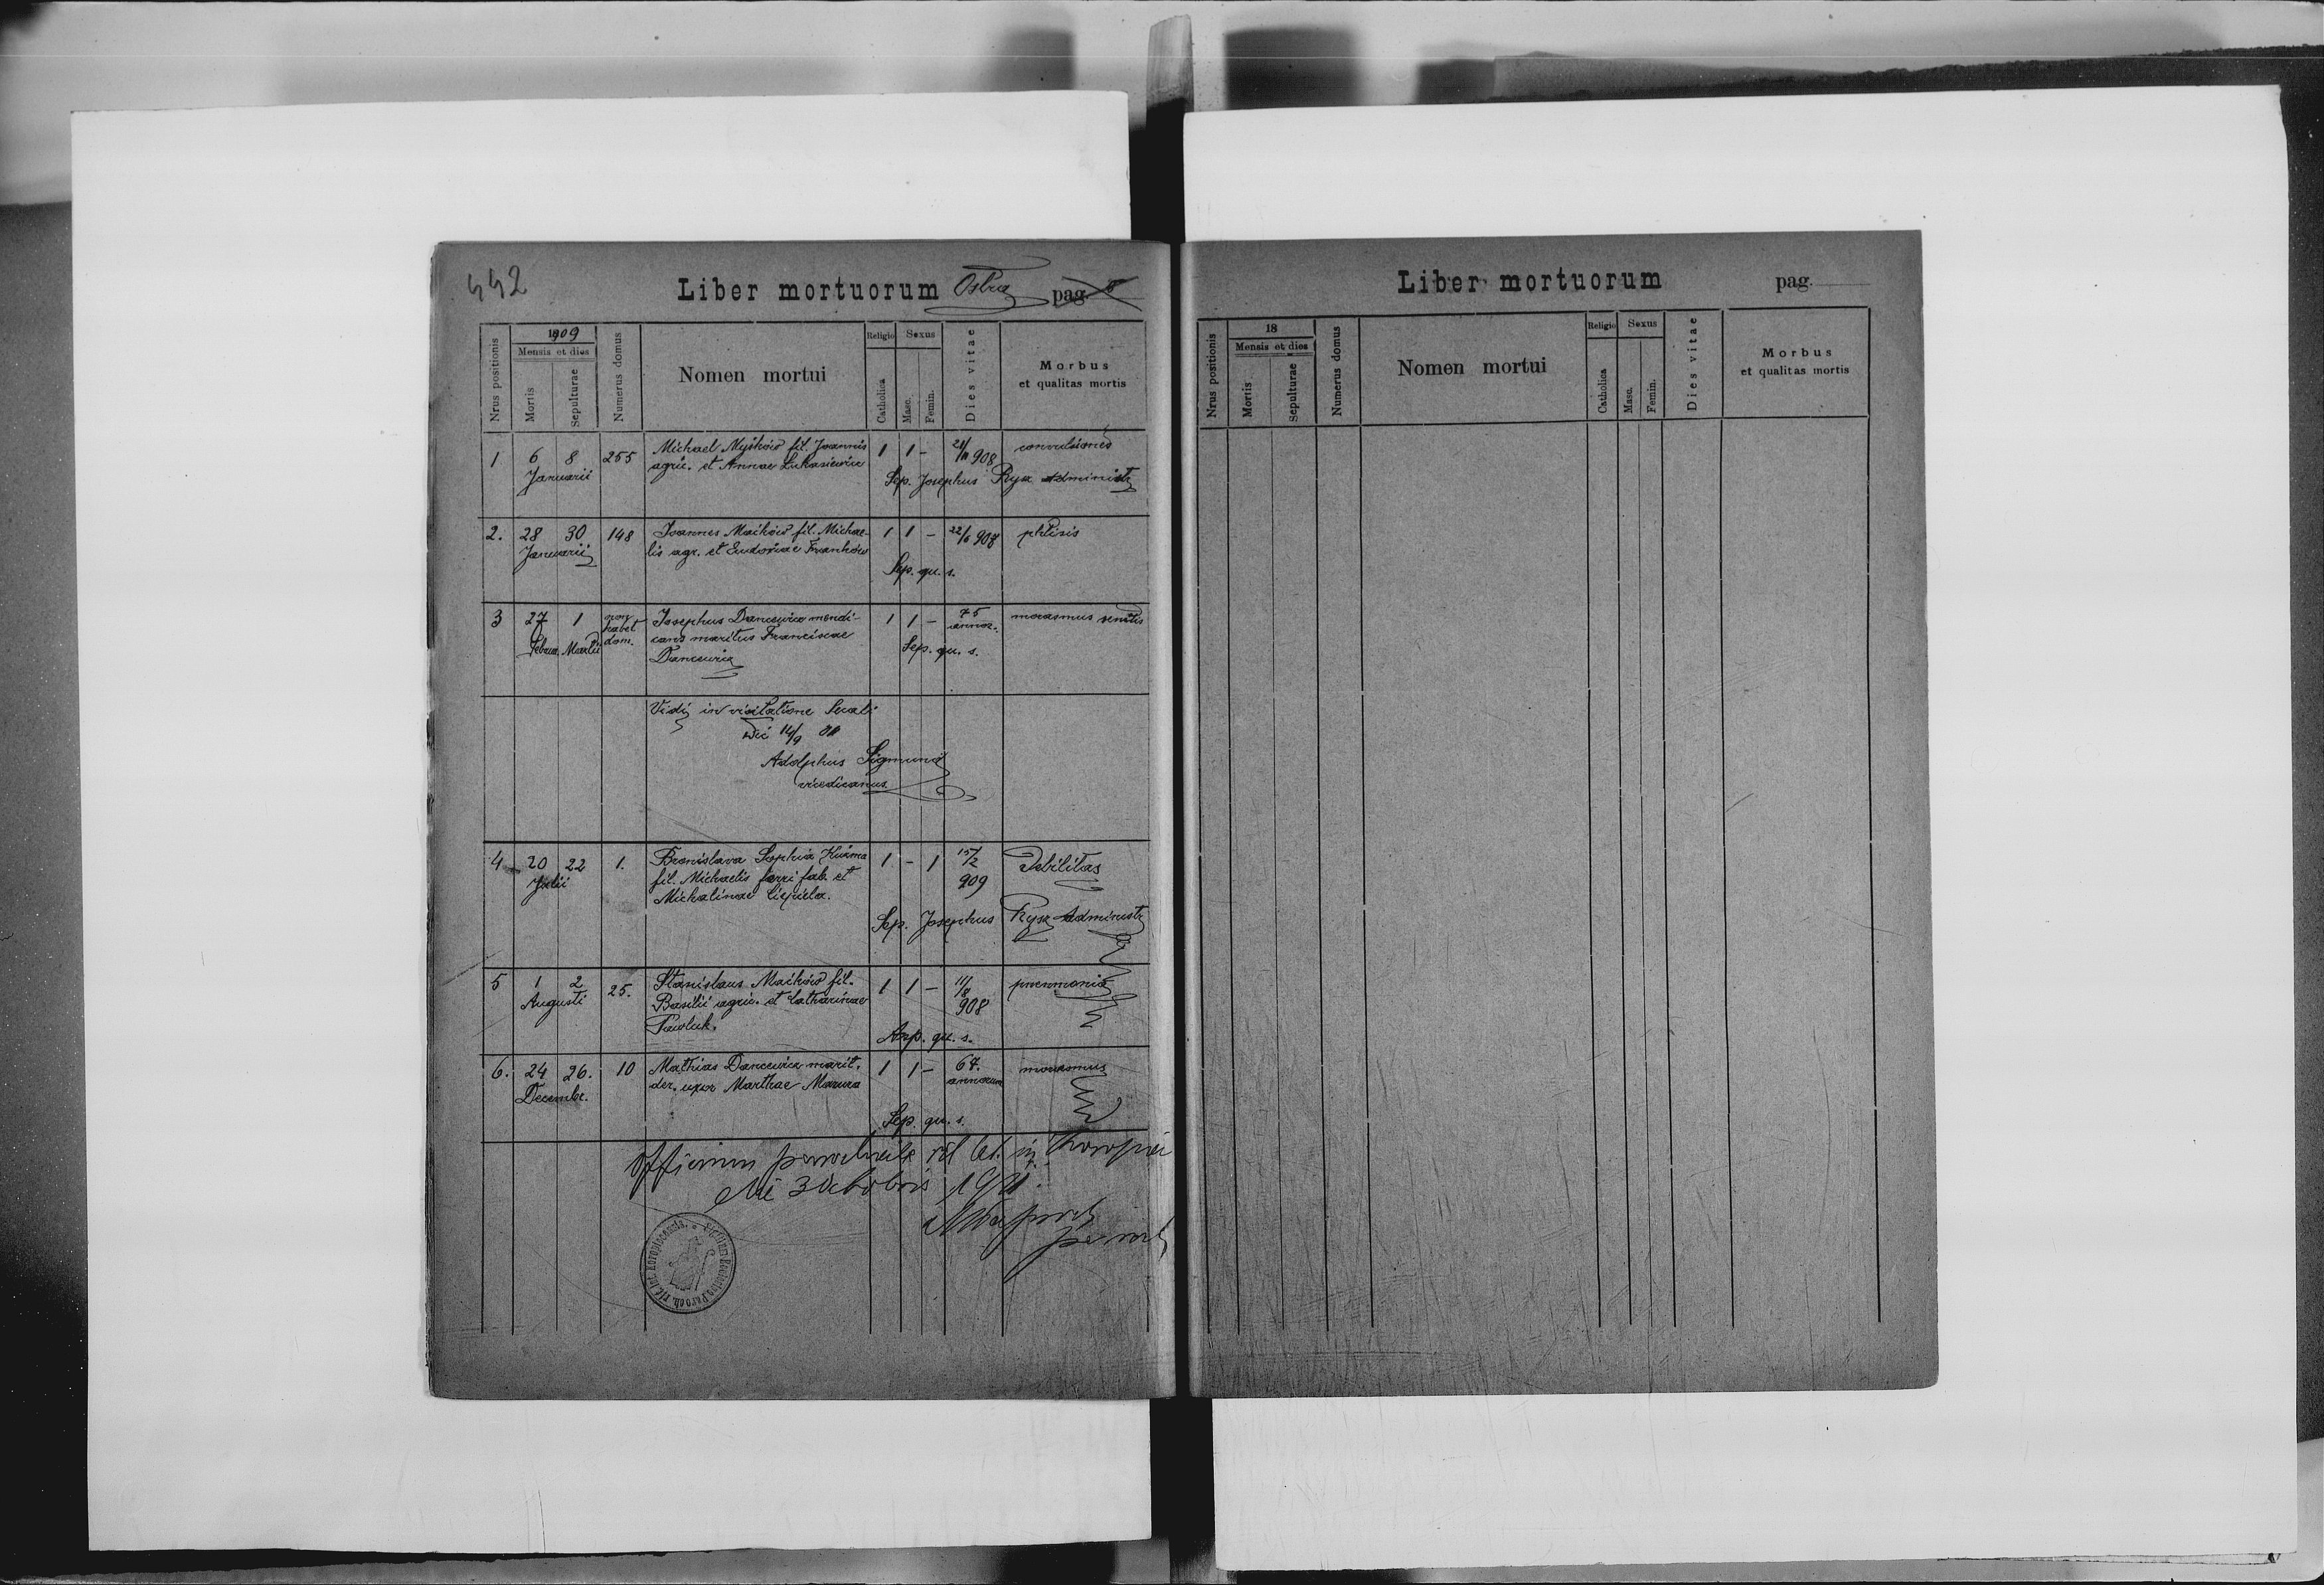 442
Liber mortuorum Ostra pag.
1909
Nrus positionis
Mensis et dies
Mortis
Sepulturae
Numerus domus
Nomen mortui
Religio
Catholica
Sexus
Masc.
Femin.
Dies vitae
Morbus
et qualitas mortis
1 6 8 255 Michael Myśków fil. Joannis 1 1 - 21/11 908 convulsiones
Januarii agric. et Annae Łukasiewicz
Sep. Josephus Ryza Administr
2. 28 30 148 Joannes Maćków fil. Michae- 1 1 - 22/6 908 phtisis
Januarii lis agr. et Eudoxiae Franków
Sep. qu. s.
3 27 1 non habet dom. Josephus Dancewicz mendi- 1 1 - 75 annor. marasmus senilis
Februar. Martii cans maritus Franciscae
Dancewicz
Sep. qu. s.
Vidi in visitatione
die 14/9
Adolphus Sigmund
vicedecanus
4 20 22 1. Bronislava Sophia 1 - 1 15/2 909 Debilitas
Julii fil. Michaelis ferri fab. et
Michalinae Ciepiela.
Sep. Josephus Ryza Administr
5 1 2 25. Stanislaus Maćków fil. 1 1 - 11/8 908 pneumonia
Augusti Basilii agric. et Catharinae
Pawluk.
Sep. qu. s.
6. 24 26. 10 Mathias Dancewicz marit. 1 1 - 67. annorum marasmus
Decembr. der. uxor Marthae Mazura
Sep. qu. s.
Officium parochiale rit. lat. in
die 3 Octobris
Liber mortuorum pag.
18
Nrus positionis
Mensis et dies
Mortis
Sepulturae
Numerus domus
Nomen mortui
Religio
Catholica
Sexus
Masc.
Femin.
Dies vitae
Morbus
et qualitas mortis